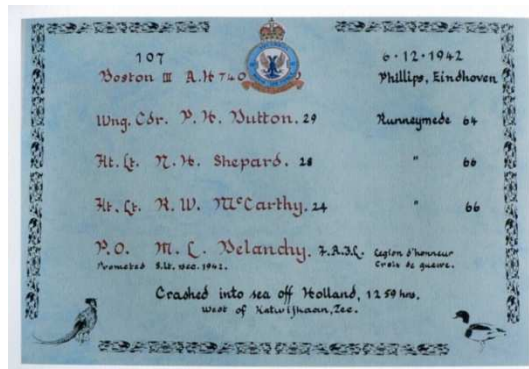 107 6·12·1942
Boston III A.H 740 Phillips, Eindhoven
Wng. Cdr. P. H. Dutton. 29 Runneymede 64
Flt. Lt. N. H. Shepard. 28 " 66
Flt. Lt. R. W. McCarthy. 24 " 66
P.O. M. L. Delanchy. F.A.F.L. Legion d'honneur
Promoted S.Lt. Dec. 1942. Croix de guerre.
Crashed into sea off Holland, 1259 hrs.
West of Katwijkaan, Zee.